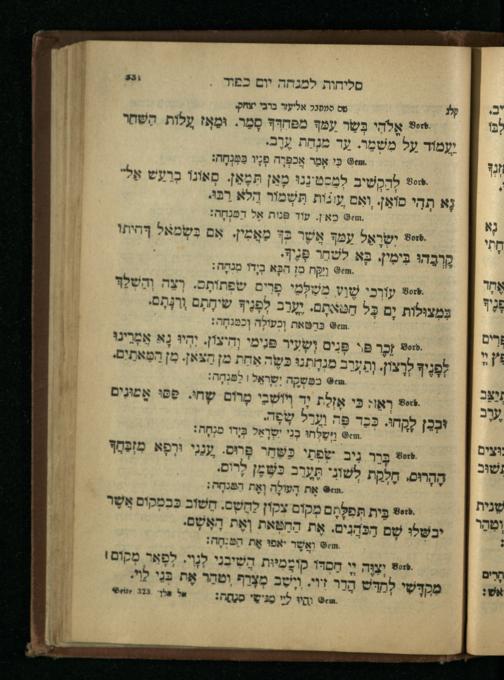 331
סליחות למנחה יום כפור
קלג
שם המחבר אליעזר ברבי יצחק.
Vorb. אֱלֹהַי בְּשַׂר עַמְּךָ מִפַּחְדְּךָ סָמַר. וּמֵאָז עֲלוֹת הַשַּׁחַר
יַעֲמוֹד עַל מִשְׁמָר. עַד מִנְחַת עָרֶב.
Gem. כִּי אָמַר אֲכַפְּרָה פָנָיו בַּמִּנְחָה:
Vorb. לְהַקְשִׁיב מֵאֵן תְּמָאֵן. סְאוֹנוֹ בְרַעַשׁ אַל־
נָא תְהִי סוֹאֵן. וְאִם עֲוֹנוֹת תִּשְׁמוֹר הֲלֹא רַבּוּ.
Gem. מֵאֵין עוֹד פְּנוֹת אֶל הַמִּנְחָה:
Vorb. יִשְׂרָאֵל עַמְּךָ אֲשֶׁר בְּךָ מַאֲמִין. אִם בִּשְׂמֹאל דְּחִיתוֹ
קָרְבֵהוּ בְיָמִין. בָּא לְשַׁחֵר פָּנֶיךָ.
Gem. וַיִּקַּח מִן הַבָּא בְיָדוֹ מִנְחָה:
Vorb. עוֹרְכֵי שֶׁוַע מְשַׁלְּמֵי פָרִים שִׂפְתוֹתָם. רְצֵה וְהַשְׁלֵךְ
בִּמְצוּלוֹת יָם כָּל חַטֹּאתָם. יֶעֱרַב לְפָנֶיךָ שִׂיחָתָם וְרִנָּתָם.
Gem. כַּחַטָּאת וְכָעוֹלָה וְכַמִּנְחָה:
Vorb. זְכָר פַּר פָּנִים וּשְׂעִיר פְּנִימִי וְחִיצוֹן. יִהְיוּ נָא אֲמָרֵינוּ
לְפָנֶיךָ לְרָצוֹן. וְתֶעֱרַב מִנְחָתֵנוּ כְּשֶׂה אַחַת מִן הַצֹּאן. מִן הַמָּאתַיִם.
Gem. מִמַּשְׁקֵה יִשְׂרָאֵל לַמִּנְחָה:
Vorb. רְאֵה כִּי אָזְלַת יָד וְיוֹשְׁבֵי מָרוֹם שַׁחוּ. פַּסּוּ אֱמוּנִים
וּבְכֵן לֻקָּחוּ. כְּבַד פֶּה וַעֲרַל שָׂפָה.
Gem. וַיִּשְׁלְחוּ בְנֵי יִשְׂרָאֵל בְּיָדוֹ מִנְחָה:
Vorb. בָּרֵר נִיב שְׂפָתַי כְּשַׁחַר פָּרוּס. עֲנֵנִי וּרְפָא מִזְבַּחֲךָ
הֶהָרוּס. חֶלְקַת לְשׁוֹנִי תֶּעֱרַב כְּשֶׁמֶן לָרוֹס.
Gem. אֶת הָעוֹלָה וְאֶת הַמִּנְחָה:
Vorb. בֵּית תְּפִלָּתָם מְקוֹם צָקוּן לַחֲשָׁם. חֲשׁוֹב כְּבִמְקוֹם אֲשֶׁר
יְבַשְּׁלוּ שָׁם הַכֹּהֲנִים. אֶת הַחַטָּאת וְאֶת הָאָשָׁם.
Gem. וַאֲשֶׁר יֹאפוּ אֶת הַמִּנְחָה:
Vorb. יְצַוֶּה יְיָ חַסְדּוֹ קוֹמְמִיּוּת הֲשִׁיבֵנִי לְנָוִי. לְפָאֵר מְקוֹם
מִקְדָּשִׁי לְחַדֵּשׁ הֲדַר זִיוִי. וְיָשַׁב מְצָרֵף וְטִהַר אֶת בְּנֵי לֵוִי.
Gem. וְהָיוּ לַיְיָ מַגִּישֵׁי מִנְחָה:
אל מלך Seite 323.